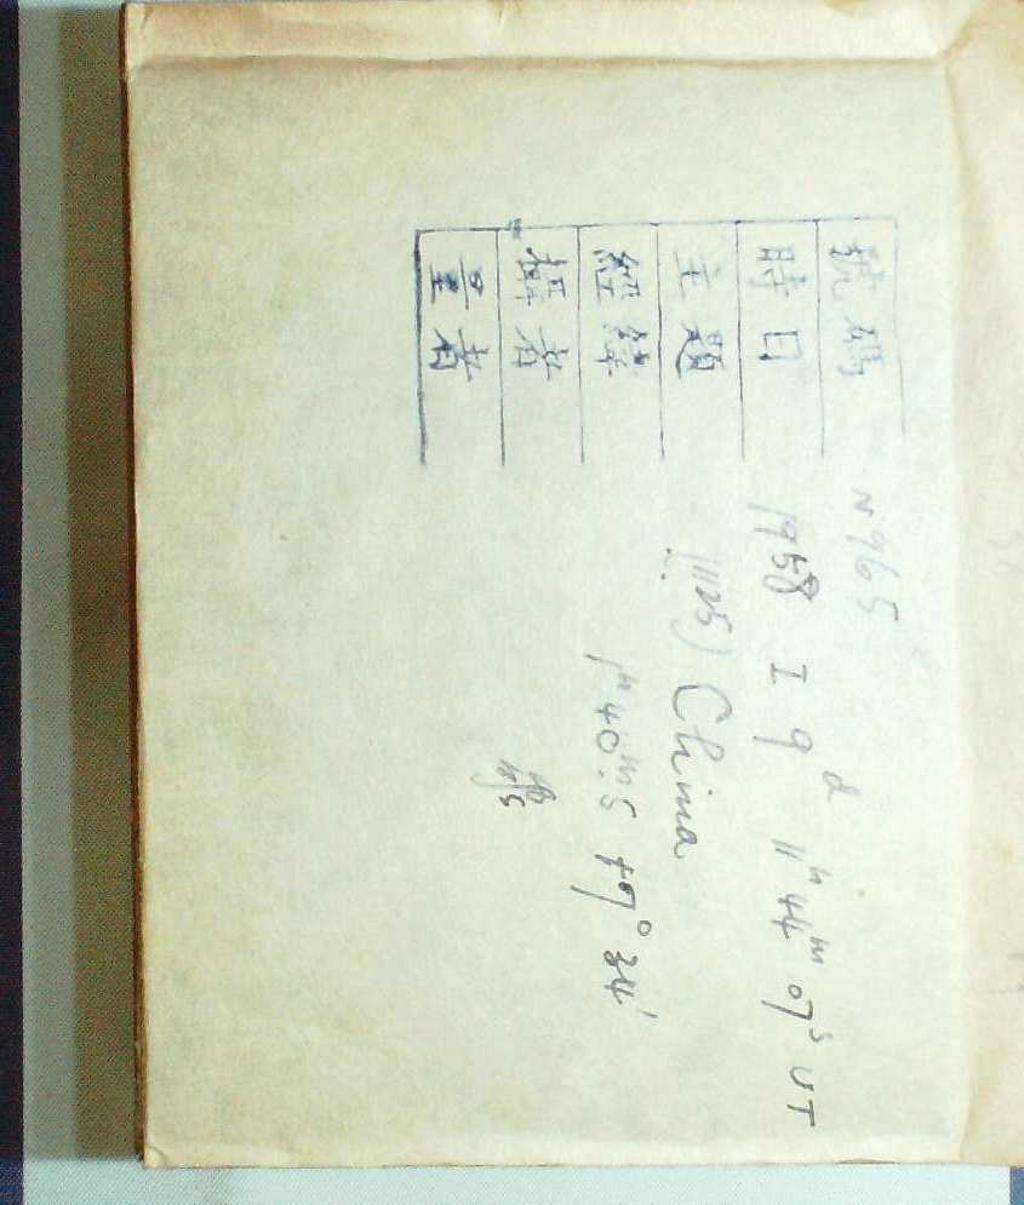 號碼 N965
時日 1958 I 9ᵈ 11ʰ 44ᵐ 07ˢ UT
主題 (1125) China
經緯 1ʰ 40ᵐ.5 +7° 34′
攝者
量者